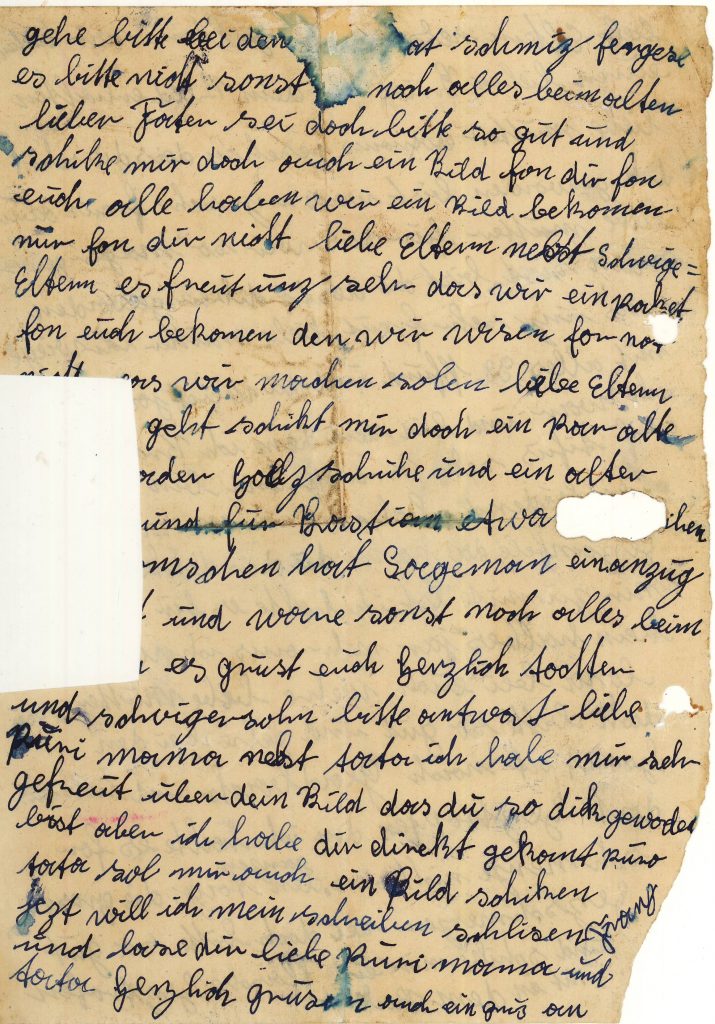 gehe bitte bei den at schmiz fergese
es bitte nicht sonst noch alles beim alten
lieber Faten sei doch bitte so gut und
schike mir doch auch ein Bild fon dir fon
euch alle haben wir ein Bild bekomen
nur fon dir nicht liebe Eltern nebst Schwige=
Eltern es freut unz sehr das wir ein paket
fon euch bekomen den wir wisen for
wir machen solen liebe Eltern
geht schikt mir doch ein par alte
oder Holz schuhe und ein alter
und für Bastian etwa
hat Saegeman ein anzug
und warne sonst noch alles beim
es grüst euch Herzlich tochter
und schwigersohn bitte antwort liebe
Runi mama nebst tata ich habe mir sehr
gefreut über dein Bild das du so dik geworden
bist aber ich habe dir direkt gekant
tata sol mir auch ein Bild schiken
jezt will ich mein schreiben schlisen Franz
und lase dir liebe Runi mama und
tata Herzlich grüsen auch ein grus an